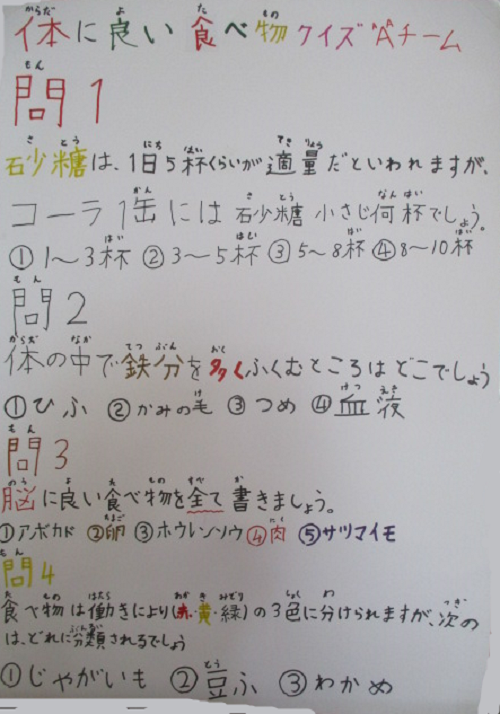 体に良い食べ物クイズ"Aチーム
問1
砂糖は、1日5杯くらいが適量だといわれますが、
コーラ1缶には砂糖小さじ何杯でしょう。
①1〜3杯 ②3〜5杯 ③5〜8杯 ④8〜10杯
問2
体の中で鉄分を多くふくむところはどこでしょう
①ひふ ②かみの毛 ③つめ ④血液
問3
脳に良い食べ物を全て書きましょう。
①アボカド ②卵 ③ホウレンソウ ④肉 ⑤サツマイモ
問4
食べ物は働きにより(赤・黄・緑)の3色に分けられますが、次の
は、どれに分類されるでしょう
①じゃがいも ②豆ふ ③わかめ